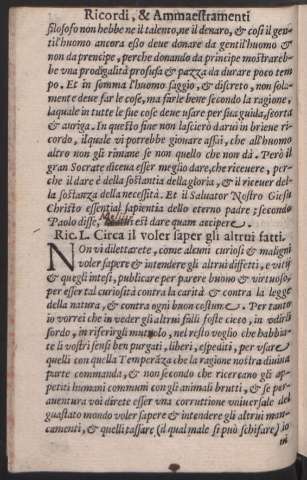 Ricordi, & Ammaestramenti
filosofo non hebbe ne il talento, ne il denaro, & così il gen-
til'huomo ancora esso deve donare da gentil'huomo &
non da prencipe, perche donando da principe mostrareb-
be vna prodigalità profusa & pazza da durare poco tem
po. Et in somma l'huomo saggio, & discreto, non sola-
mente deve far le cose, ma farle bene secondo la ragione,
laquale in tutte le sue cose deve usare per sua guida, scorta
& auriga. In questo fine non lascierò darui in brieue ri-
cordo, ilquale vi potrebbe giovare assai, che all'huomo
altro non gli rimane se non quello che non dà. Però il
gran Socrate diceua esser meglio dare, che riceuere, per-
che il dare è della sostantia della gloria, & il riceuer del-
la sostanza della necessità. Et il Saluator Nostro Giesu
Christo essential sapientia dello eterno padre; secondo
Paolo disse, Melius est dare quam accipere.
Ric. L. Circa il voler saper gli altrui fatti.
NOn vi dilettarete, come alcuni curiosi & maligni
voler sapere & intendere gli altrui diffetti, e vitij
& quegli intesi, publicare per parere buono & virtuoso,
per esser tal curiosità contra la carità & contra la legge
della natura, & contra ogni buon costume. Per tanto
io vorrei che in veder gli altrui falli foste cieco, in vdirli
sordo, in riferirgli mutolo, nel resto voglio che habbia-
te li vostri sensi ben purgati, liberi, espediti, per vsare
quelli con quella Temperãza che la ragione nostra diuina
parte commanda, & non secondo che ricercano gli ap-
petiti humani communi con gli animali brutti, & se per
auentura voi direte esser vna corruttione vniuersale del
guastato mondo voler sapere & intendere gli altrui man-
camenti, & quelli tassare (il qual male si può schifare) io
vi